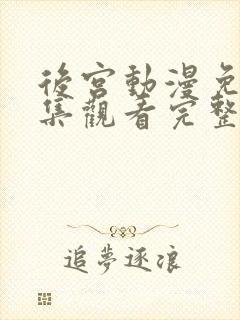 後宮動漫免
集觀看完整
追夢逐浪